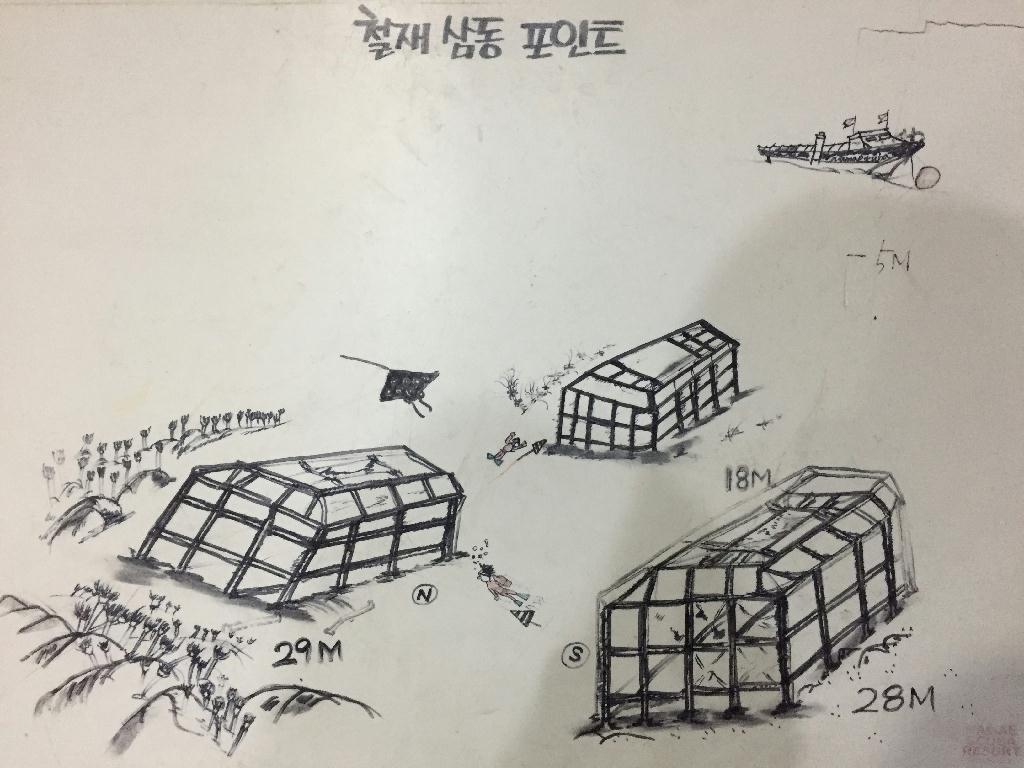 철재 삼동 포인트
-5M
18M
N
29M
S
28M
RESORT